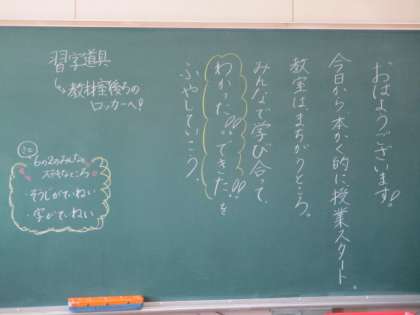 おはようございます。
今日から本かく的に授業スタート。
教室は、まちがうところ。
みんなで学び合って、
わかった!!できた!!を
ふやしていこう。
習字道具
↳教材室後ろの
ロッカーへ!
6の2のみんなの
ステキなところ
・そうじがていねい
・字がていねい